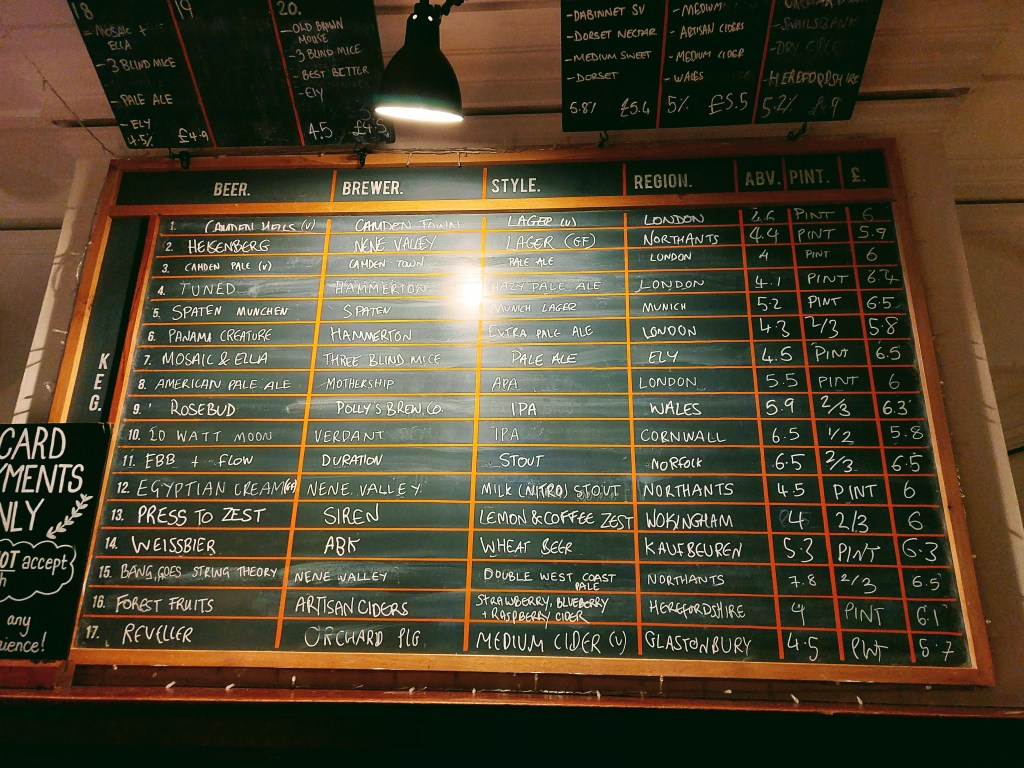 18
- MOSAIC + ELLA
- 3 BLIND MICE
- PALE ALE
- ELY
4.5% £4.9
19
20.
- OLD BROWN MOUSE
- 3 BLIND MICE
- BEST BITTER
- ELY
4.5 £4.5
- DABINNET SV
- DORSET NECTAR
- MEDIUM SWEET
- DORSET
5.8% £5.4
- MEDIUM
- ARTISAN CIDERS
- MEDIUM CIDER
- WALES
5% £5.5
- DRY CIDER
- HEREFORDSHIRE
5.2%
BEER. BREWER. STYLE. REGION. ABV. PINT. £.
KEG.
1. CAMDEN HELLS (V) CAMDEN TOWN LAGER (V) LONDON 4.6 PINT 6
2. HEISENBERG NENE VALLEY LAGER (GF) NORTHANTS 4.4 PINT 5.9
3. CAMDEN PALE (V) CAMDEN TOWN PALE ALE LONDON 4 PINT 6
4. TUNED HAMMERTON HAZY PALE ALE LONDON 4.1 PINT 6.4
5. SPATEN MUNCHEN SPATEN MUNICH LAGER MUNICH 5.2 PINT 6.5
6. PANAMA CREATURE HAMMERTON EXTRA PALE ALE LONDON 4.3 2/3 5.8
7. MOSAIC & ELLA THREE BLIND MICE PALE ALE ELY 4.5 PINT 6.5
8. AMERICAN PALE ALE MOTHERSHIP APA LONDON 5.5 PINT 6
9. ROSEBUD POLLY'S BREW, CO. IPA WALES 5.9 2/3 6.3
10. 20 WATT MOON VERDANT IPA CORNWALL 6.5 1/2 5.8
11. EBB + FLOW DURATION STOUT NORFOLK 6.5 2/3 6.5
12. EGYPTIAN CREAM (GF) NENE VALLEY MILK (NITRO) STOUT NORTHANTS 4.5 PINT 6
13. PRESS TO ZEST SIREN LEMON & COFFEE ZEST WOKINGHAM 4 2/3 6
14. WEISSBIER ABK WHEAT BEER KAUFBEUREN 5.3 PINT 6.3
15. BANG, GOES STRING THEORY NENE VALLEY DOUBLE WEST COAST PALE NORTHANTS 7.8 2/3 6.5
16. FOREST FRUITS ARTISAN CIDERS STRAWBERRY, BLUEBERRY + RASPBERRY CIDER HEREFORDSHIRE 4 PINT 6.1
17. REVELLER ORCHARD PIG MEDIUM CIDER (V) GLASTONBURY 4.5 PINT 5.7
CARD
YMENTS
NLY
NOT accept
h
any
ience!